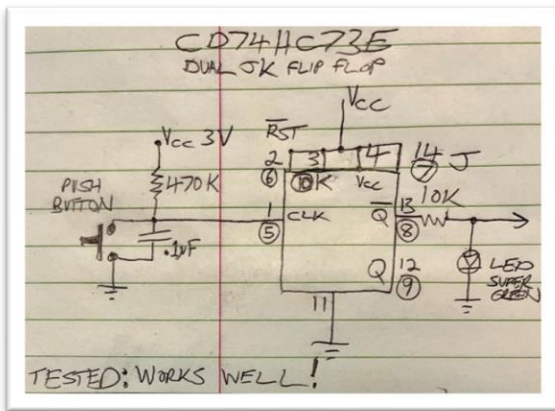 CD74HC73E
DUAL JK FLIP FLOP
Vcc
Vcc 3V
RST
2
3
4
14
6
10
K
Vcc
7
J
470K
PUSH
BUTTON
1
CLK
5
Q
13
10K
8
.1µF
Q
12
9
LED
SUPER
GREEN
11
TESTED: WORKS WELL!